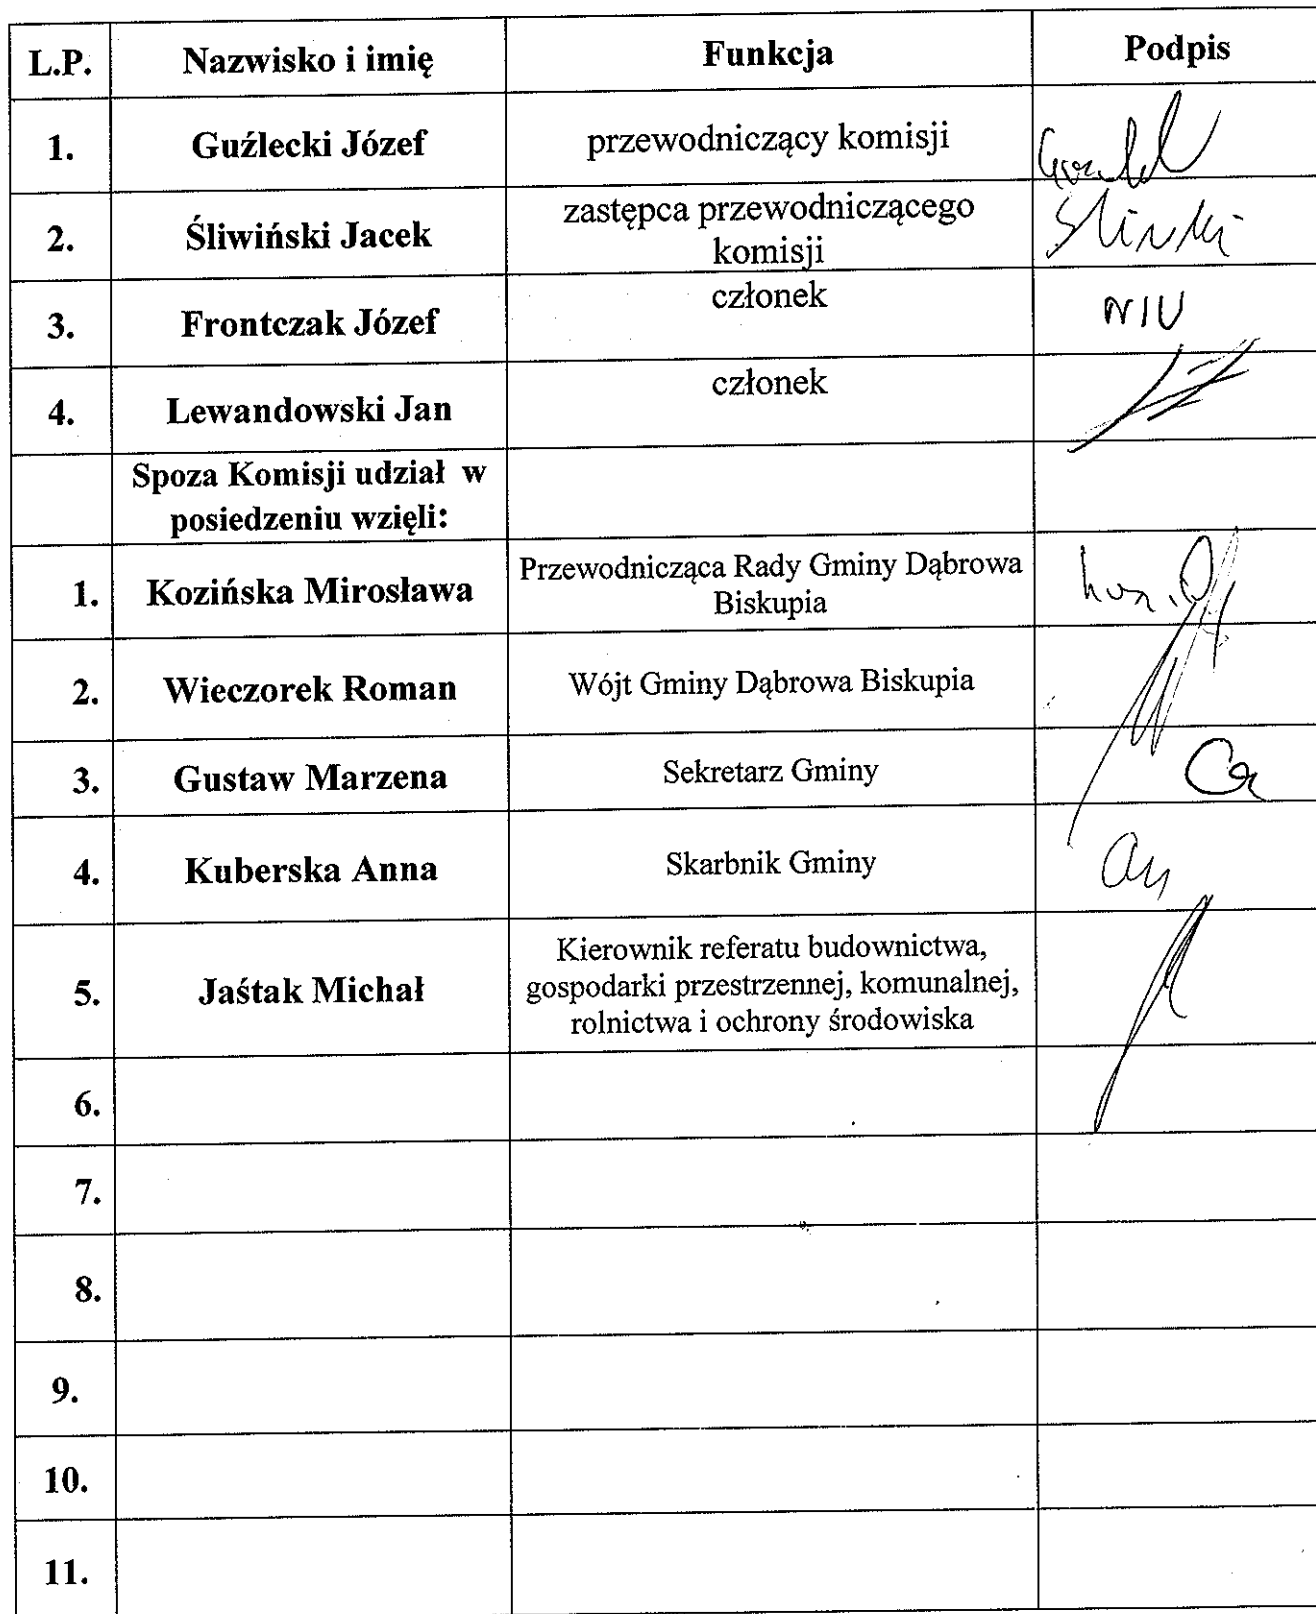 L.P. Nazwisko i imię Funkcja Podpis
1. Guźlecki Józef przewodniczący komisji
2. Śliwiński Jacek zastępca przewodniczącego
komisji
3. Frontczak Józef członek
4. Lewandowski Jan członek
Spoza Komisji udział w
posiedzeniu wzięli:
1. Kozińska Mirosława Przewodnicząca Rady Gminy Dąbrowa
Biskupia
2. Wieczorek Roman Wójt Gminy Dąbrowa Biskupia
3. Gustaw Marzena Sekretarz Gminy
4. Kuberska Anna Skarbnik Gminy
5. Jaśtak Michał Kierownik referatu budownictwa,
gospodarki przestrzennej, komunalnej,
rolnictwa i ochrony środowiska
6.
7.
8.
9.
10.
11.